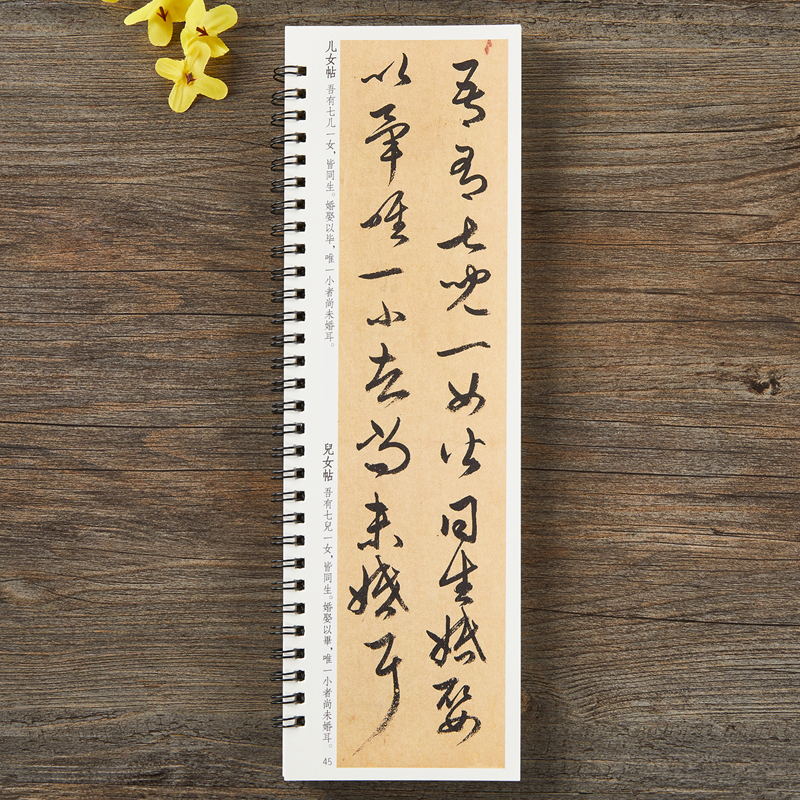 吾有七兒一女皆同生婚娶
以畢唯一小者尚未婚耳
儿女帖 吾有七儿一女，皆同生。婚娶以毕，唯一小者尚未婚耳。
兒女帖 吾有七兒一女，皆同生。婚娶以畢，唯一小者尚未婚耳。
45